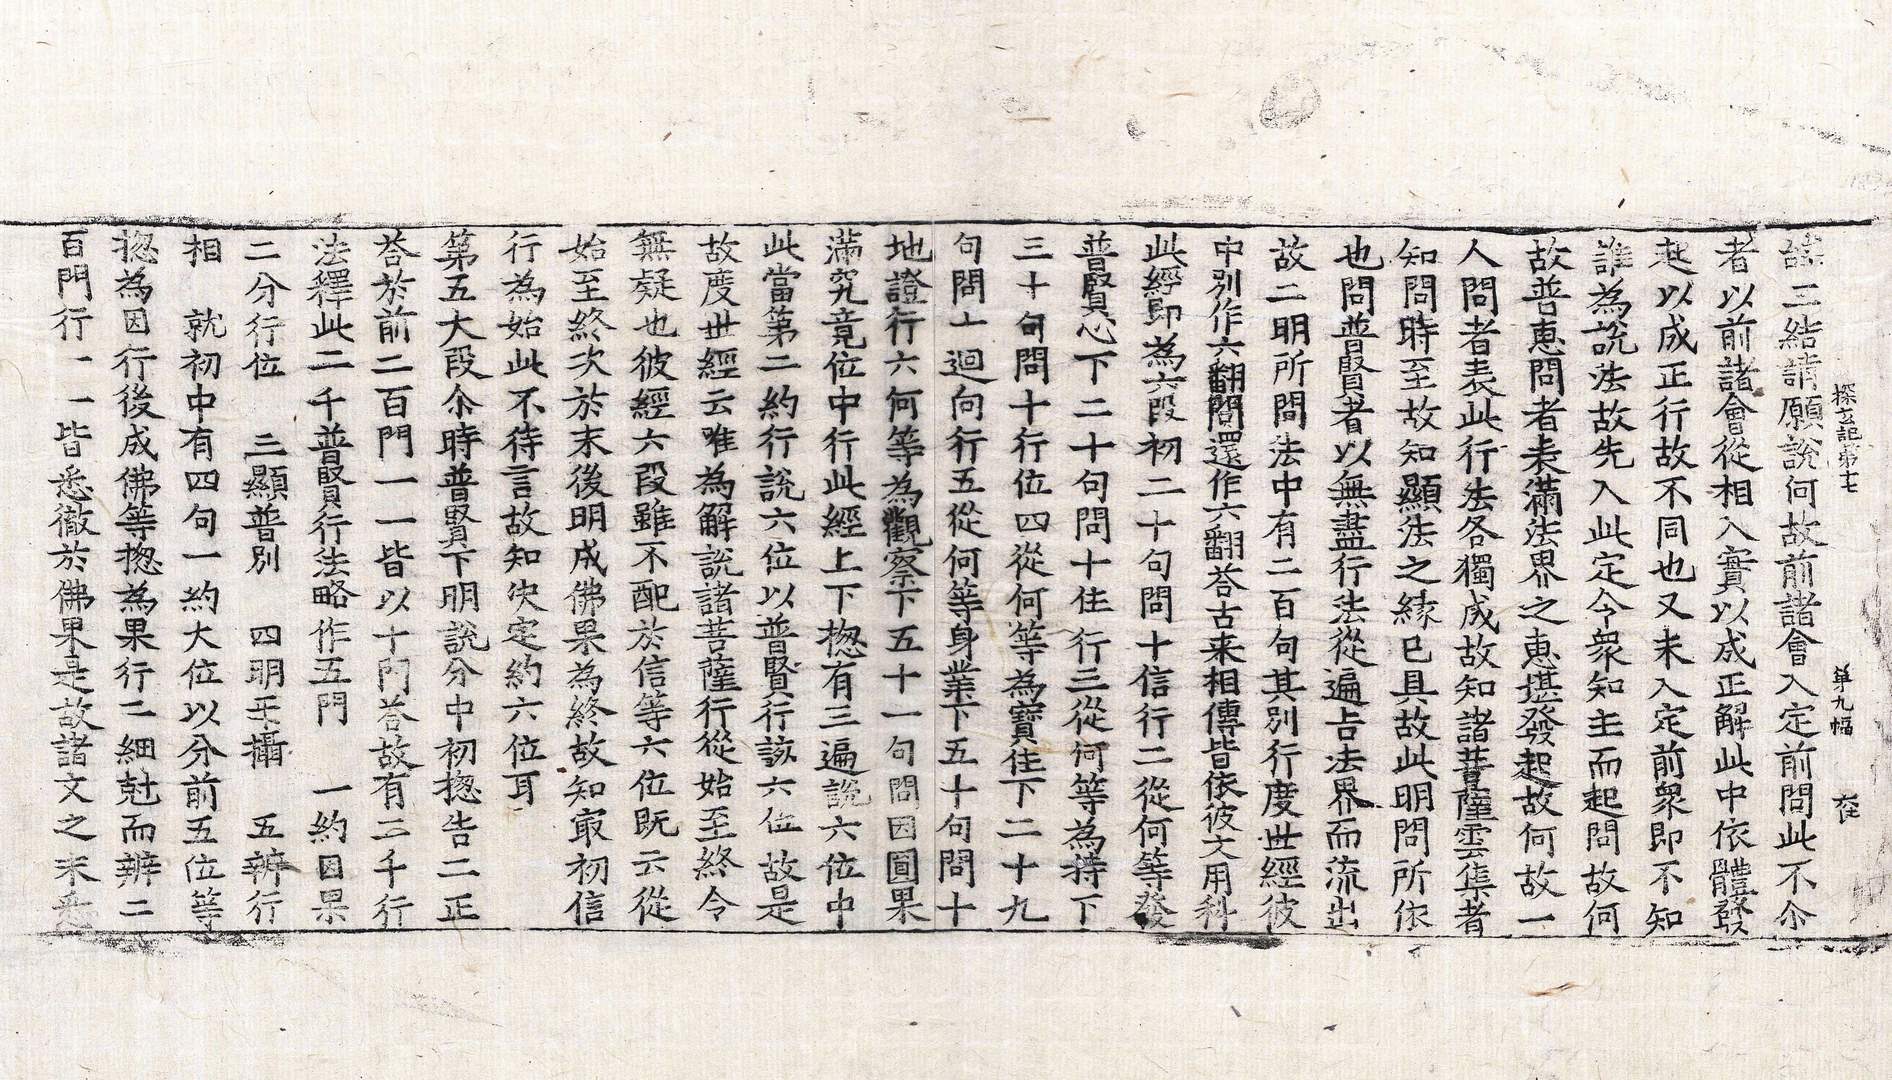 探玄記第十七　第九幅　大左
三結請願說何故前諸會入定前問此不尒
者以前諸會從相入實以成正解此中依體發
起以成正行故不同也又未入定前衆即不知
誰為說法故先入此定今衆知主而起問故何
故普恵問者表滿法界之恵堪發起故何故一
人問者表此行法各獨成故知諸菩薩雲集者
知問時至故知顯法之緣已具故此明問所依
也問普賢者以無盡行法從遍吉法界而流出
故二明所問法中有二百句其別行度世經彼
中別作六翻問還作六翻荅古来相傳皆依彼文用科
此經即為六段初二十句問十信行二從何等發
普賢心下二十句問十住行三從何等為持下
三十句問十行位四從何等為寶住下二十九
句問十迴向行五從何等身業下五十句問十
地證行六何等為觀察下五十一句問因圓果
滿究竟位中行此經上下揔有三遍說六位中
此當第二約行說六位以普賢行該六位故是
故度世經云唯為解說諸菩薩行從始至終令
無疑也彼經六段雖不配於信等六位既云從
始至終次於末後明成佛果為終故知㝡初信
行為始此不待言故知決定約六位耳
第五大段尒時普賢下明說分中初揔告二正
荅於前二百門一一皆以十門荅故有二千行
法釋此二千普賢行法略作五門　一約因果
二分行位　三顯普別　四明手攝　五辨行
相　就初中有四句一約大位以分前五位等
揔為因行後成佛等揔為果行二細尅而辨二
百門行一一皆悉徹於佛果是故諸文之末悉